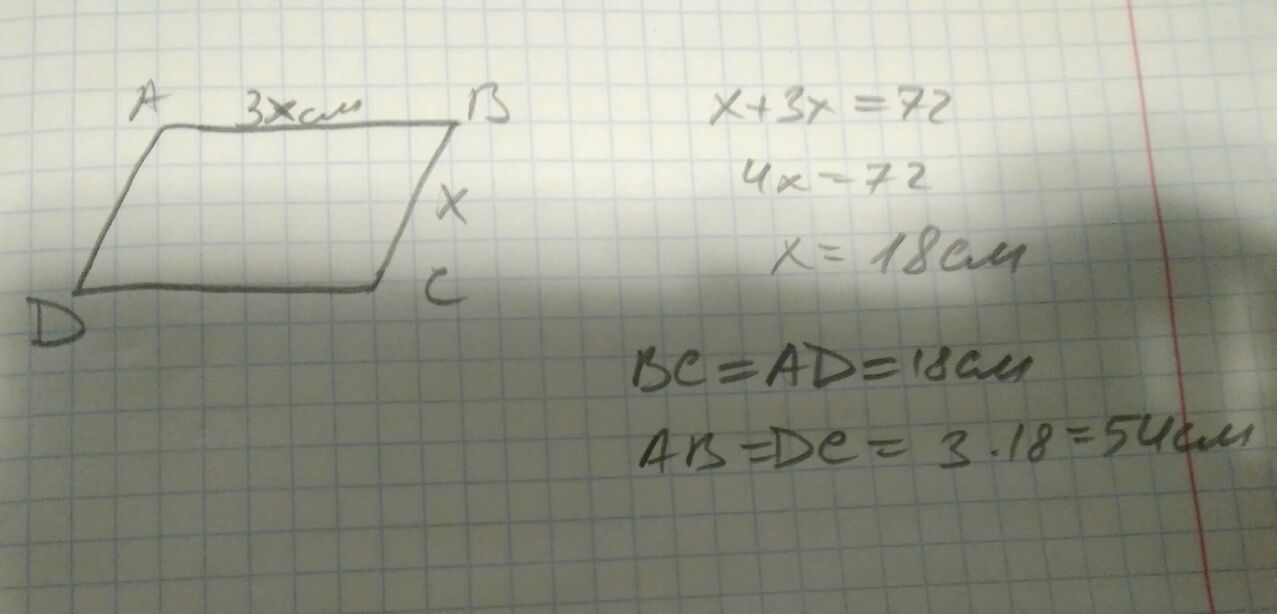 A 3x см B
x
D C
x+3x=72
4x=72
x= 18см
BC=AD=18см
AB=DC= 3·18=54см